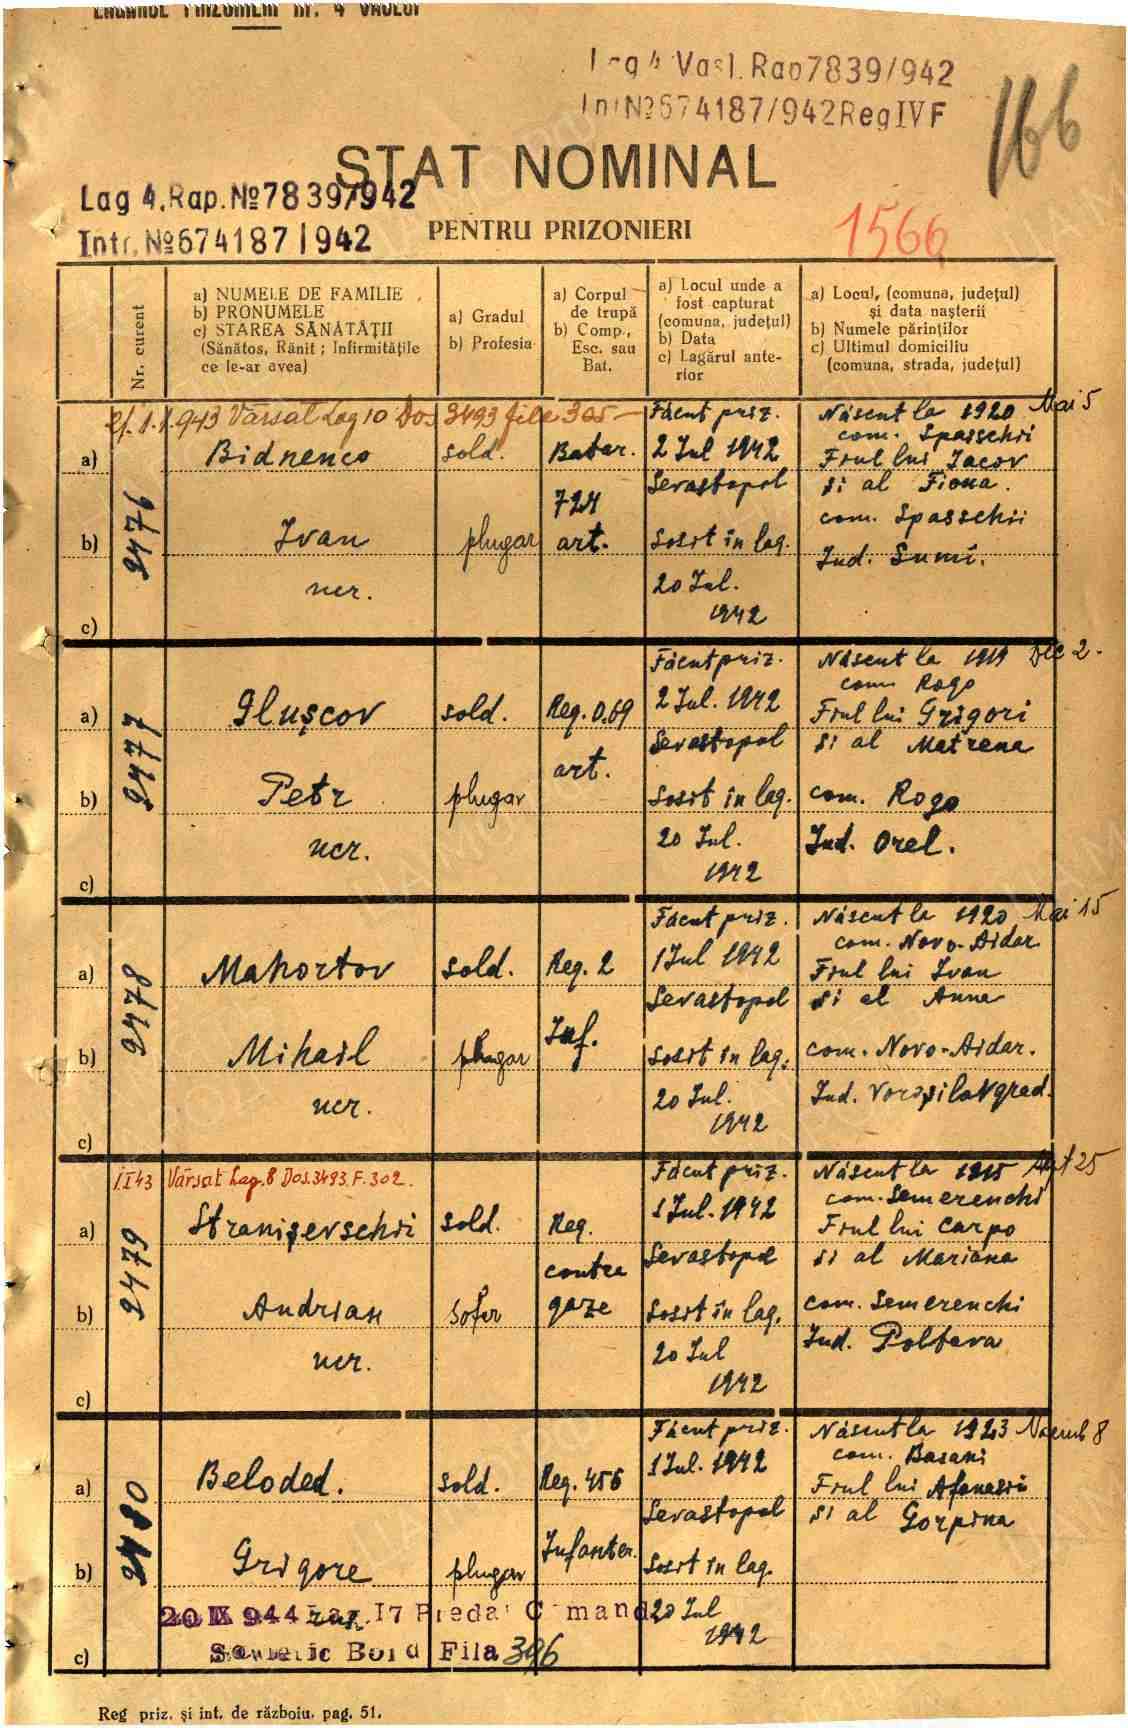 LAGĂRUL PRIZONIERI nr. 4 VASLUI
Lag 4 Vasl. Rap 7839/942
Int №674187/942 Reg IV F
166
STAT NOMINAL
Lag 4. Rap. №7839/942
Intr. №674187/942
PENTRU PRIZONIERI
1566
Nr. curent
a) NUMELE DE FAMILIE
b) PRONUMELE
c) STAREA SĂNĂTĂȚII
(Sănătos, Rănit; Infirmitățile
ce le-ar avea)
a) Gradul
b) Profesia
a) Corpul
de trupă
b) Comp.,
Esc. sau
Bat.
a) Locul unde a
fost capturat
(comuna, județul)
b) Data
c) Lagărul ante-
rior
a) Locul, (comuna, județul)
și data nașterii
b) Numele părinților
c) Ultimul domiciliu
(comuna, strada, județul)
1.1.943 Vărsat Lag 10 Dos 3493 file 305
2476
a)
b)
c)
Bidnenco
Ivan
ucr.
sold.
plugar
Bater.
724
art.
Făcut priz.
2 Iul 1942
Sevastopol
Sosit în lag.
20 Iul.
1942
Născut la 1920 Mai 5
com. Spasschii
Fiul lui Iacov
și al Fiona.
com. Spasschii
Jud. Sumi.
2477
a)
b)
c)
Glușcov
Petr
ucr.
sold.
plugar
Reg. 0.69
art.
Făcut priz.
2 Iul. 1942
Sevastopol
Sosit în lag.
20 Iul.
1942
Născut la 1919 Dec 2.
com. Rogo
Fiul lui Grigori
si al Matrena
com. Rogo
Jud. Orel.
2478
a)
b)
c)
Mahortov
Mihail
ucr.
sold.
plugar
Reg. 2
Inf.
Făcut priz.
1 Iul 1942
Sevastopol
Sosit în lag.
20 Iul.
1942
Născut la 1920 Mai 15
com. Novo-Aidar
Fiul lui Ivan
si al Anna
com. Novo-Aidar.
Jud. Voroșilovgrad.
1.I 43 Vărsat Lag. 8 Dos. 3493. F. 302.
2479
a)
b)
c)
Stranișevschii
Andrian
ucr.
sold.
Sofer
Reg.
contra
gaze
Făcut priz.
1 Iul. 1942
Sevastopol
Sosit în lag.
20 Iul
1942
Născut la 1915 Agt 25
com. Semerenchi
Fiul lui Carpo
si al Mariana
com. Semerenchi
Jud. Poltava
2480
a)
b)
c)
Beloded.
Grigore
ucr.
sold.
plugar
Reg. 456
Infanter.
Făcut priz.
1 Iul. 1942
Sevastopol
Sosit în lag.
20 Iul
1942
Născut la 1923 Noemb 8
com. Basani
Fiul lui Afanasii
si al Gorpina
20 IX 944 Lag. 17 Predat Comand
Sovietic Bord Fila 396
Reg priz. și int. de războiu. pag. 51.